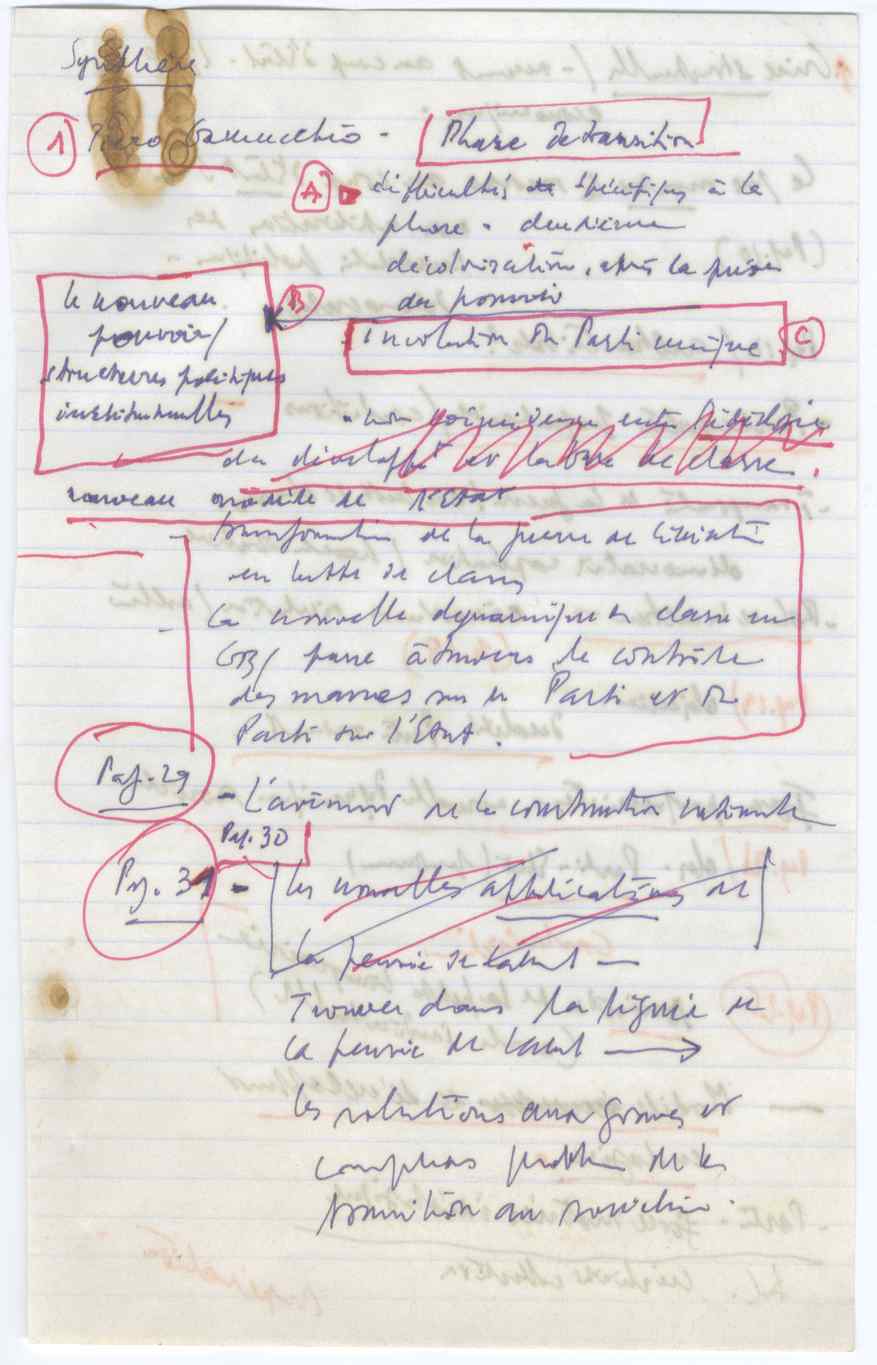 Synthèse
1 Piero Gamacchio - Phase de transition
A difficultés spécifiques à la
phase - deuxième
décolonisation, après la prise
du pouvoir
B
le nouveau
pouvoir/
structures politiques
institutionnelles
involution du Parti unique C
- non coïncidence entre l'idéologie
du et la base de classe.
nouveau modèle de l'Etat
- transformation de la guerre de libération
en lutte de classes
- La nouvelle dynamique de classe en
GB/ passe à travers le contrôle
des masses sur le Parti et du
Parti sur l'Etat.
Pag. 29 - L'avenir de la construction nationale
Pag. 30
Pag. 31 - les nouvelles applications de
la pensée de Cabral —
Trouver dans la lignée de
la pensée de Cabral →
les solutions aux graves et
complexes problèmes de la
transition au socialisme.